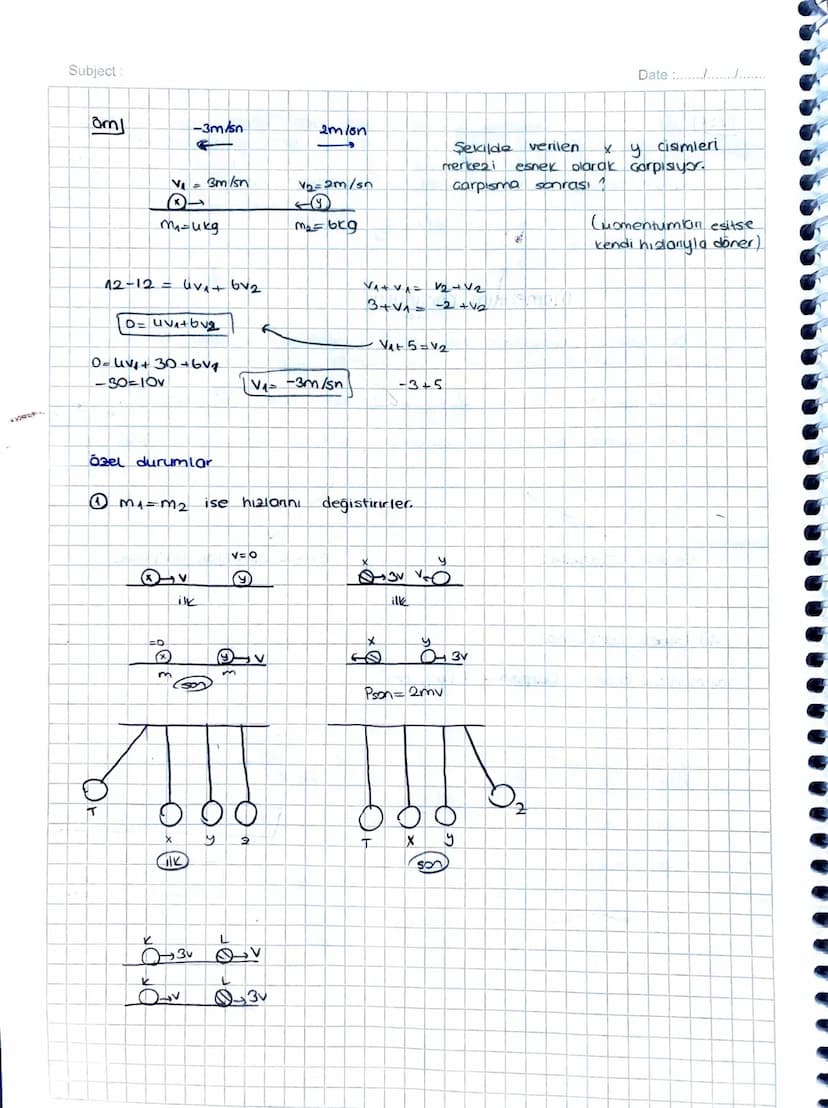 Subject :
Date :....../....../......
Örn/
-3m/sn
2m/sn
Şekilde verilen x y cisimleri
merkezi esnek olarak çarpışıyor.
çarpışma sonrası ?
V1 = 3m/sn
V2=2m/sn
x
y
m1=4kg
m2=6kg
(momentumları eşitse
kendi hızlarıyla döner)
12-12 = 4v1+ 6v2
V1+V1= V2+V2
3+V1= -2+V2
0=4V1+6V2
V1+5=V2
0=4V1+30+6V1
-30=10V
V1= -3m/sn
-3+5
özel durumlar
① m1=m2 ise hızlarını değiştirirler.
V=0
x
y
x
V
y
3V
V
ilk
ilk
=0
x
y
x
y
V
3V
m
m
son
Pson= 2mv
T
2
x
y
z
T
x
y
ilk
son
K
L
3V
V
K
L
V
3V